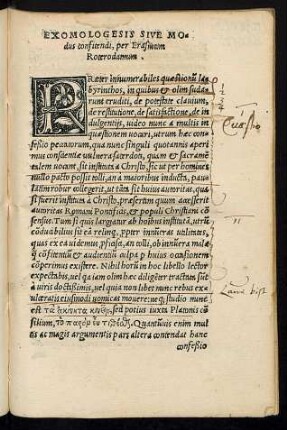 EXOMOLOGESIS SIVE MO-
dus confitendi, per Erasmum
Roterodamum.
PRæter innumerabiles quæstionũ la-
byrinthos, in quibus & olim suda-
runt eruditi, de potestate clavium,
de restitutione, de satisfactione, de in-
dulgentijs, video nunc a multis in
quæstionem vocari, utrum hæc con-
fessio peccatorum, qua nunc singuli quotannis aperi-
mus conscientiæ vulnera sacerdoti, quam & sacramē-
talem vocant, sit instituta a Christo, sic ut per homines
nullo pacto possit tolli, an a maioribus inducta,
sit tamen huius autoritas, qua-
si fuisset instituta a Christo, præsertim quum accesserit
autoritas Romani Pontificis, & populi Christiani cō-
sensus. Tum si quis largiatur ab hominibus institutã, utrũ
cōducibilius sit eã relinq, ppter innumeras utilitates,
quas ex ea videmus pficisci, an tolli, ob innumera mala,
q̃ cōfitentiũ & audientiũ culpa p huius occasionem
cōperimus existere. Nihil horũ in hoc libello lector
expectabis, vel qa iam olim hæc diligēter tractata sūt
a viris doctissimis, vel quia non libet nunc rebus ex-
ulceratis eiusmodi vomicas movere: neq studio nunc
est τὰ ἀκίνητα κινεῖν, sed potius iuxta Platonis cō-
silium, τὸ παρὸν εὖ τιθέναι. Quamvis enim mul-
tis ac magis argumentis pars altera contendat hanc
confessio
Quæstio